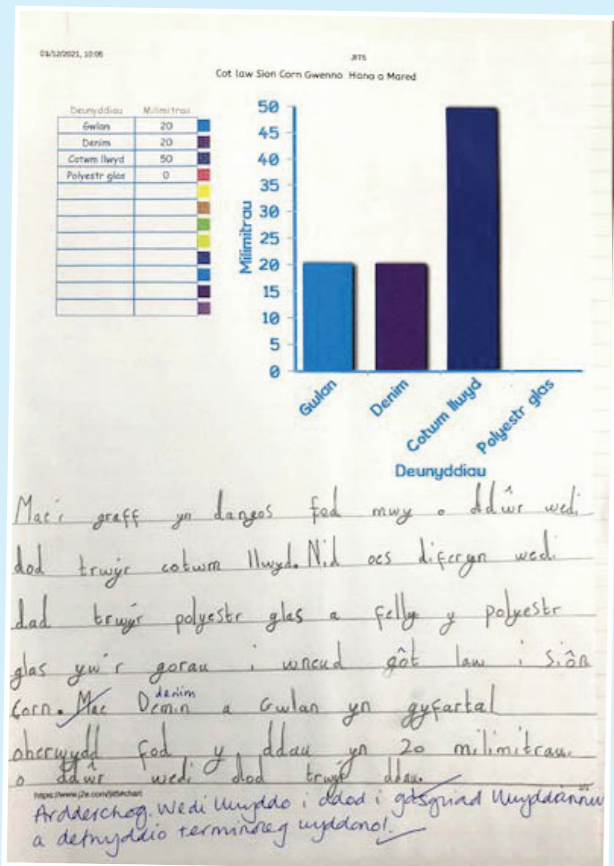 01/12/2021, 10:06
JIT5
Cot law Sion Corn Gwenno Hana a Mared
Deunyddiau Milimitrau
Gwlan 20
Denim 20
Cotwm llwyd 50
Polyestr glas 0
50
45
40
35
30
25
20
15
10
5
0
Milimitrau
Gwlan
Denim
Cotwm llwyd
Polyestr glas
Deunyddiau
Mae'r graff yn dangos fod mwy o ddŵr wedi
dod trwy'r cotwm llwyd. Nid oes diferyn wedi
dad trwy'r polyestr glas a felly y polyestr
glas yw'r gorau i wneud gôt law i Siôn
denim
Corn. Mae Demin a Gwlan yn gyfartal
oherwydd fod y ddau yn 20 milimitrau
o ddŵr wedi dod trwy'r ddau.
https://www.j2e.com/jit5#chart
Ardderchog. Wedi llwyddo i ddod i gasgliad llwyddiannus
a defnyddio terminoleg wyddonol.